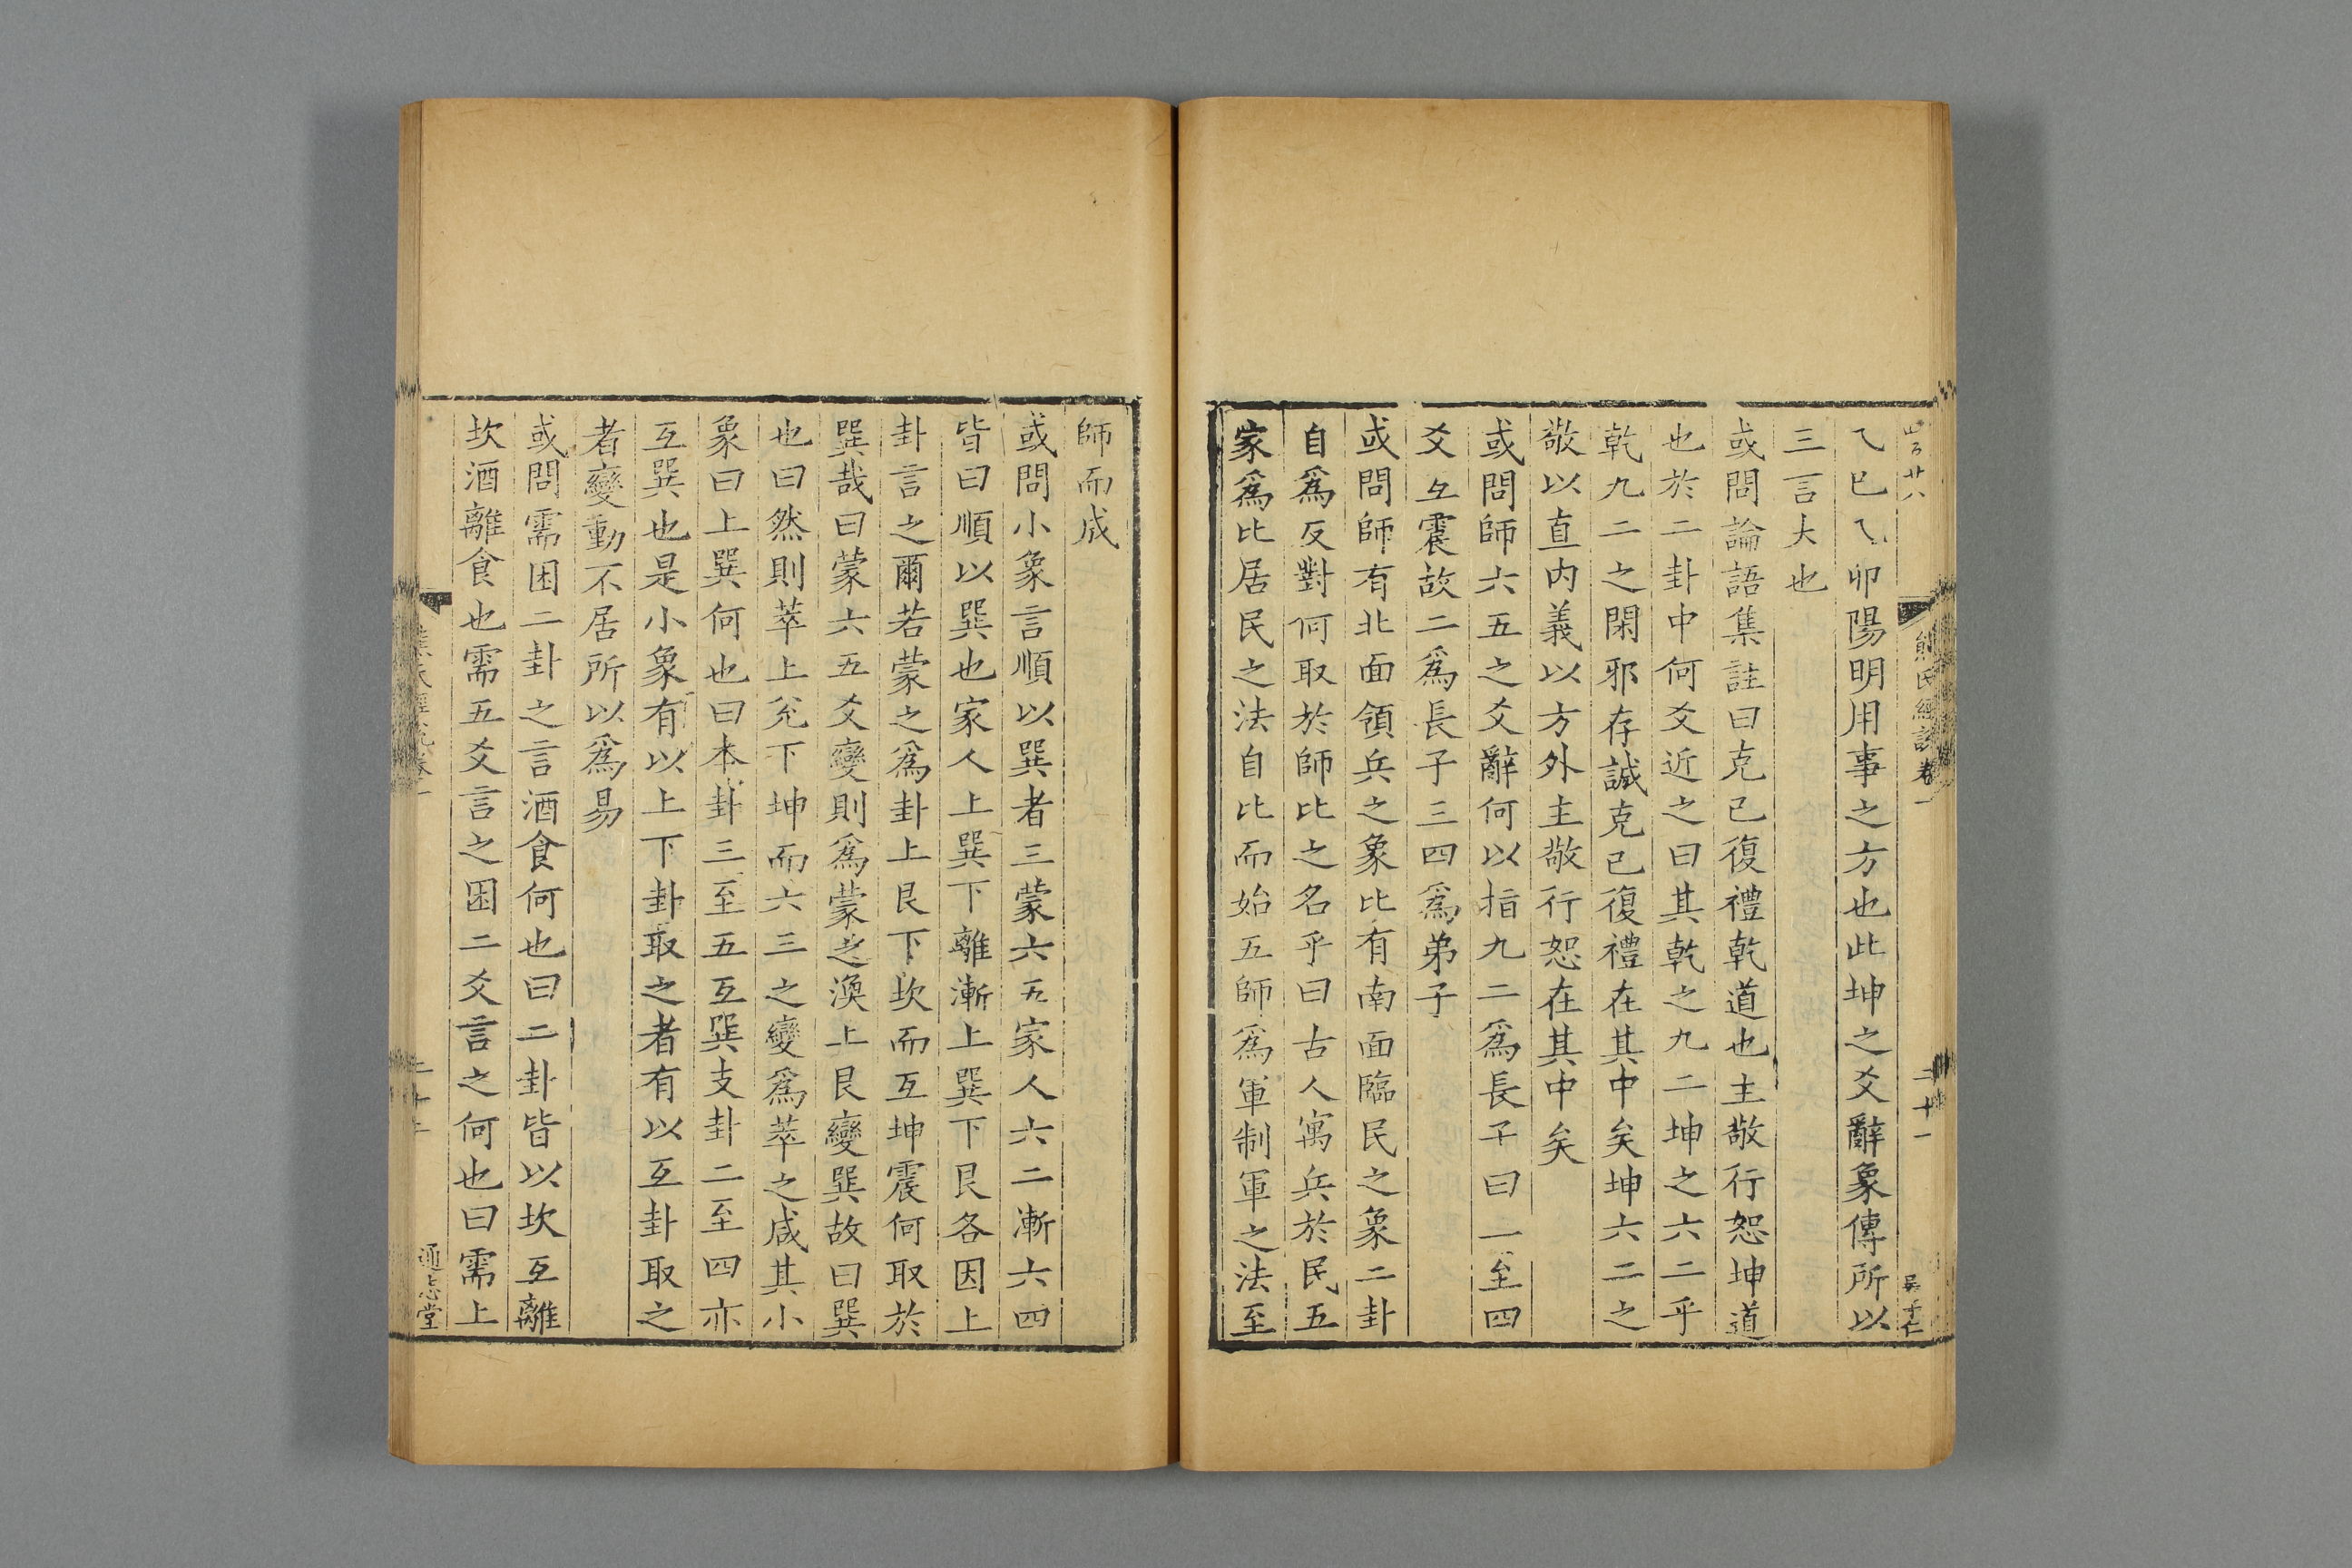 乁巳乁卯陽明用事之方也此坤之爻辭象傳所以
三言大也
或問論語集註曰克己復禮乾道也主敬行恕坤道
也於二卦中何爻近之曰其乾之九二坤之六二乎
乾九二之閑邪存誠克己復禮在其中矣坤六二之
敬以直内義以方外主敬行恕在其中矣
或問師六五之爻辭何以指九二爲長子曰二至四
爻互震故二爲長子三四爲弟子
或問師有北面領兵之象比有南面臨民之象二卦
自爲反對何取於師比之名乎曰古人寓兵於民五
家爲比居民之法自比而始五師爲軍制軍之法至
師而成
或問小象言順以巽者三蒙六五家人六二漸六四
皆曰順以巽也家人上巽下離漸上巽下艮各因上
卦言之爾若蒙之爲卦上艮下坎而互坤震何取於
巽哉曰蒙六五爻變則爲蒙之渙上艮變巽故曰巽
也曰然則萃上兊下坤而六三之變爲萃之咸其小
象曰上巽何也曰本卦三至五互巽支卦二至四亦
互巽也是小象有以上下卦取之者有以互卦取之
者變動不居所以爲易
或問需困二卦之言酒食何也曰二卦皆以坎互離
坎酒離食也需五爻言之困二爻言之何也曰需上
熊氏經說卷一
二十一
通志堂